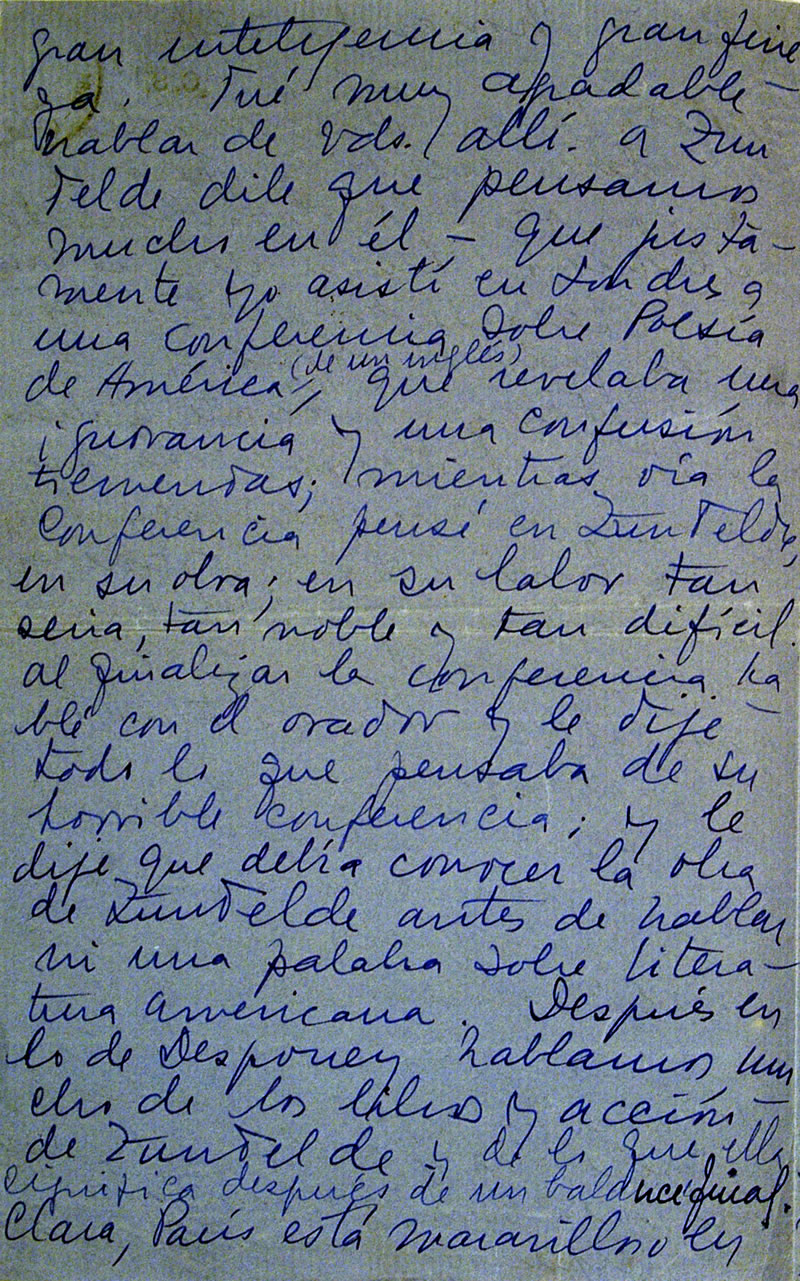 gran inteligencia y gran fine
za. Fué muy agradable
hablar de Vds. allí. a Zum
Felde dile que pensamos
mucho en él - que justa-
mente yo asistí en Londres a
una conferencia sobre Poesía
de América, (de un inglés) que revelaba una
ignorancia y una confusión
tremendas; mientras oía la
conferencia pensé en Zum Felde,
en su obra; en su labor tan
seria, tan noble y tan difícil.
al finalizar la conferencia ha
blé con el orador y le dije
todo lo que pensaba de su
horrible conferencia; y le
dije que debía conocer la obra
de Zum Felde antes de hablar
ni una palabra sobre litera-
tura americana. Después en
lo de hablamos mu
cho de los libros y acción
de Zum Felde y de lo que ella
significa después de un balance final.
Clara, París está maravilloso en